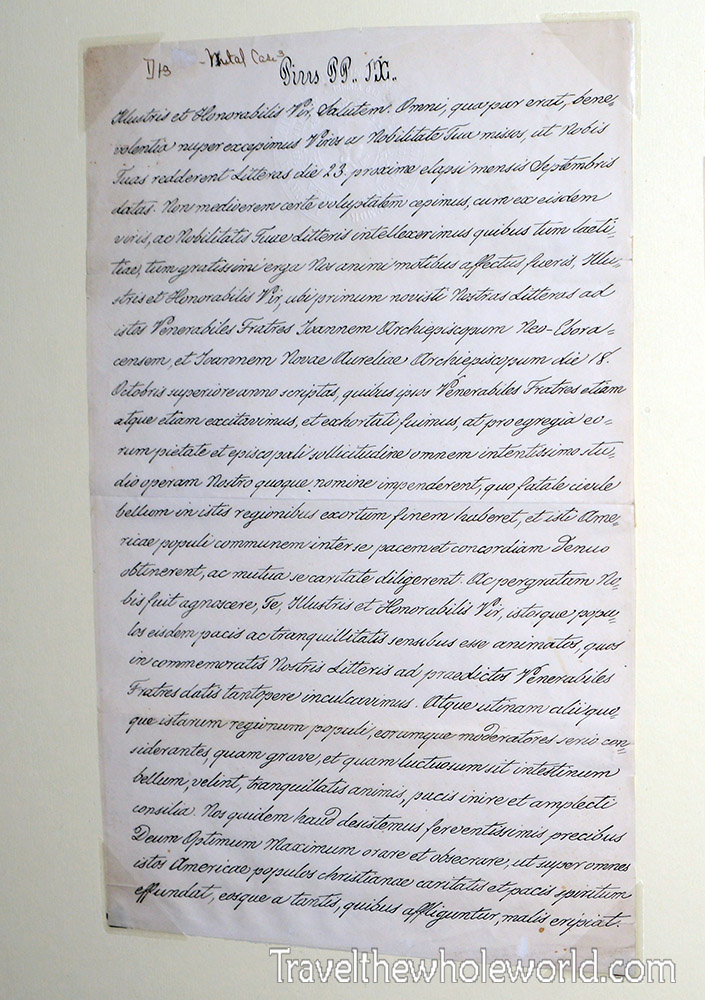 I/13 - Metal Case 3
Pius PP. IX.
Illustris et Honorabilis Vir, Salutem. Omni, qua par erat, bene-
volentia nuper excepimus Viros a Nobilitate Tua missos, ut Nobis
Tuas redderent Litteras die 23 proxime elapsi mensis Septembris
datas. Non mediocrem certe voluptatem cepimus, cum ex eisdem
viris, ac Nobilitatis Tuae Litteris intellexerimus quibus tum laeti-
tiae, tum gratissimi erga Nos animi motibus affectus fueris, Illu-
stris et Honorabilis Vir, ubi primum novisti Nostras Litteras ad
istos Venerabiles Fratres Ioannem Archiepiscopum Neo-Ebora-
censem, et Ioannem Novae Aureliae Archiepiscopum die 18.
Octobris superiore anno scriptas, quibus ipsos Venerabiles Fratres etiam
atque etiam excitavimus, et exhortati fuimus, ut pro egregia eo-
rum pietate et episcopali sollicitudine omnem intentissimo stu-
dio operam Nostro quoque nomine impenderent, quo fatale civile
bellum in istis regionibus exortum finem haberet, et isti Ame-
ricae populi communem inter se pacem et concordiam denuo
obtinerent, ac mutua se caritate diligerent. Ac pergratum No-
bis fuit agnoscere, Te, Illustris et Honorabilis Vir, istosque popu-
los eisdem pacis ac tranquillitatis sensibus esse animatos, quos
in commemoratis Nostris Litteris ad praedictos Venerabiles
Fratres datis tantopere inculcavimus. Atque utinam alii quo-
que istarum regionum populi, eorumque moderatores serio con-
siderantes, quam grave, et quam luctuosum sit intestinum
bellum, velint, tranquillatis animis, pacis inire et amplecti
consilia. Nos quidem haud desistemus ferventissimis precibus
Deum Optimum Maximum orare et obsecrare, ut super omnes
istos Americae populos christianae caritatis et pacis spiritum
effundat, eosque a tantis, quibus affliguntur, malis eripiat.
Travelthewholeworld.com